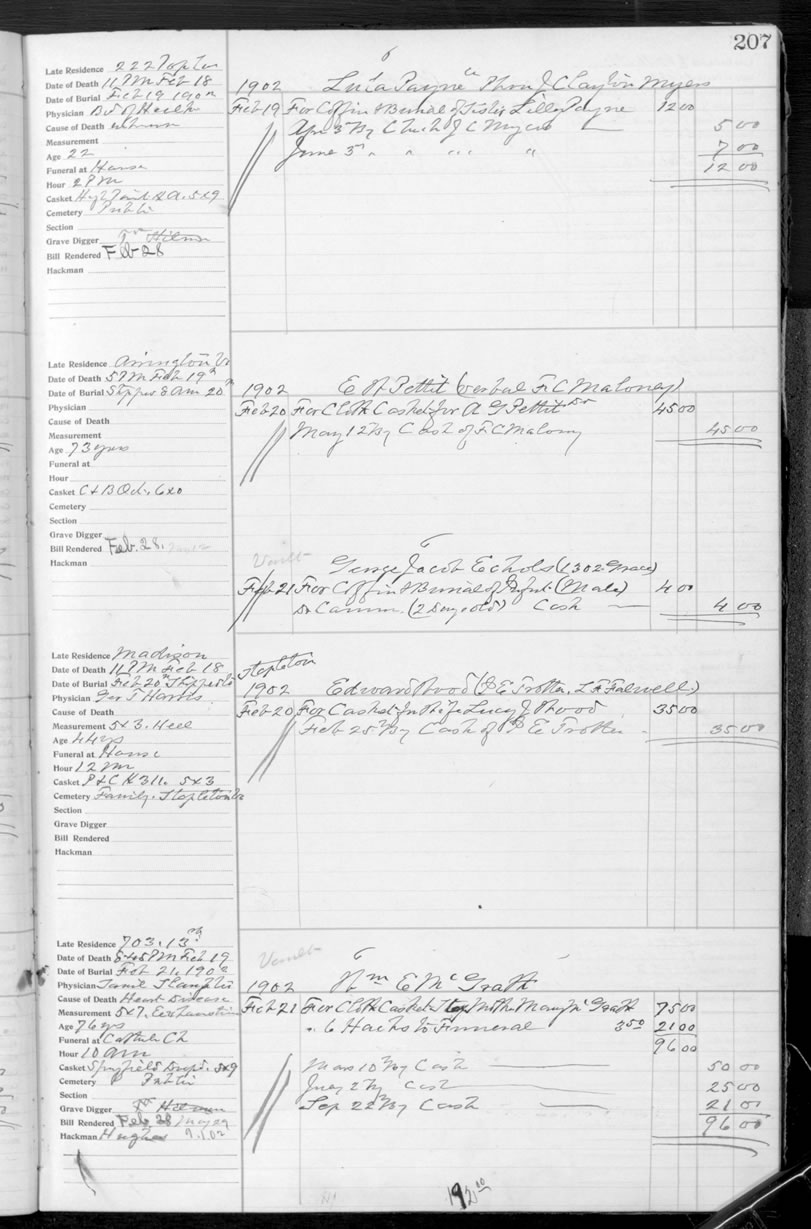 207
Late Residence 222
Date of Death 11 PM Feb 18
Date of Burial Feb 19 190
Physician Bd of Health
Cause of Death
Measurement
Age 22
Funeral at House
Hour 2 PM
Casket 5x9
Cemetery Public
Section
Grave Digger
Bill Rendered Feb 28
Hackman
1902 Payne J Clayton Myers
Feb 19 For Coffin & Burial of Sister Lilly Payne 12 00
Apr 3 By Cash of J C Myers 5 00
June 3 " " " " 7 00
12 00
Late Residence Arrington Va
Date of Death 5 PM Feb 19th
Date of Burial Shipped 8 Am 20
Physician
Cause of Death
Measurement
Age 73 yrs
Funeral at
Hour
Casket C & B Oct. 6x0
Cemetery
Section
Grave Digger
Bill Rendered Feb. 28.
Hackman
1902 E A Pettit (verbal F. C Maloney)
Feb 20 For Cloth Casket for A G Pettit 45 00
May 12 By Cash of F C Malony 45 00
George Jacob Echols (1302 Grace)
Feb 21 For Coffin & Burial of Infant (Male) 4 00
Dr (2 Days old) Cash 4 00
Late Residence Madison
Date of Death 11 PM Feb 18
Date of Burial Feb 20th Shipped to Stapleton
Physician Geo T Harris
Cause of Death
Measurement 5x3. Heel
Age 44 yrs
Funeral at House
Hour 12 M
Casket P & C H 311. 5x3
Cemetery Family. Stapleton Va
Section
Grave Digger
Bill Rendered
Hackman
1902 Edward Wood (P E Trotter. L F Falwell)
Feb 20 For Casket for Wife Lucy J Wood 35 00
Feb 25 By Cash of P E Trotter 35 00
Late Residence 703. 13th
Date of Death 8 45 PM Feb 19
Date of Burial Feb 21. 190
Physician
Cause of Death Heart Disease
Measurement 5x7. Exhaustion
Age 76 yrs
Funeral at Catholic Ch
Hour 10 am
Casket Springfield 5x9
Cemetery Public
Section
Grave Digger
Bill Rendered Feb 28 May 29
Hackman Hughes
1902 Wm E McGrath
Feb 21 For Cloth Casket Mother Mary McGrath 75 00
" 6 Hacks to Funeral 3 50 21 00
96 00
Mar 10 By Cash 50 00
July 2 By Cash 25 00
Sep 22 By Cash 21 00
96 00
192 00